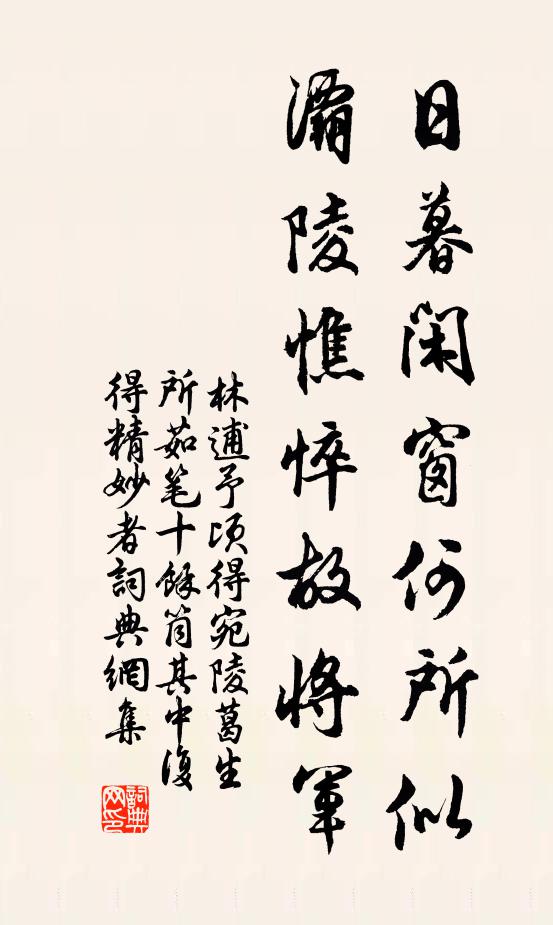 日暮閑窗何所似
灞陵憔悴故將軍
林逋予頃得宛陵葛生
所茹笔十餘筒其中復
得精妙者詞典網集
詞典
网印